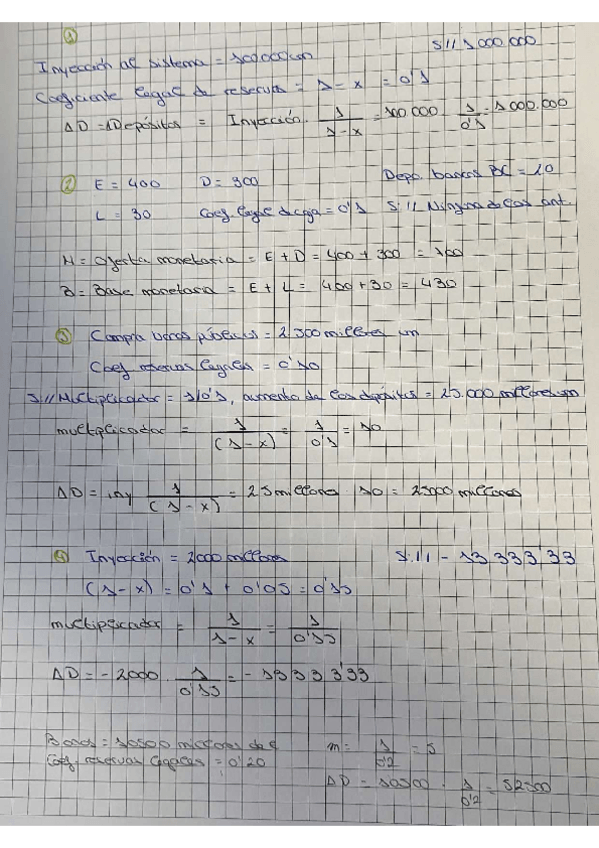 1
S// 1000.000
Inyección al sistema = 100.000 um
Coeficiente legal de reservas = 1-x = 0'1
ΔD = ΔDepósitos = Inyección . 1/(1-x) = 100 000 . 1/0'1 = 1000.000
2 E = 400 D = 300 Depo. bancos BC = 10
L = 30 Coef. legal de caja = 0'1 S:// Ninguna de las ant.
M = Oferta monetaria = E + D = 400 + 300 = 700
B = Base monetaria = E + L = 400 + 30 = 430
3 Compra bonos públicos = 2.500 millones um
Coef reservas legales = 0'10
S:// Multiplicador = 1/0'1, aumento de los depósitos = 25.000 millones um
multiplicador = 1/(1-x) = 1/0'1 = 10
ΔD = iny 1/(1-x) = 25 millones 10 = 25000 millones
4 Inyección = 2000 millones S:// - 13 333'33
(1-x) = 0'1 + 0'05 = 0'15
multiplicador = 1/1-x = 1/0'15
ΔD = - 2000 . 1/0'15 = - 13333'33
Bonos = 10500 millones de € m = 1/0'2 = 5
Coef. reservas legales = 0'20
ΔD = 10500 . 1/0'2 = 52500